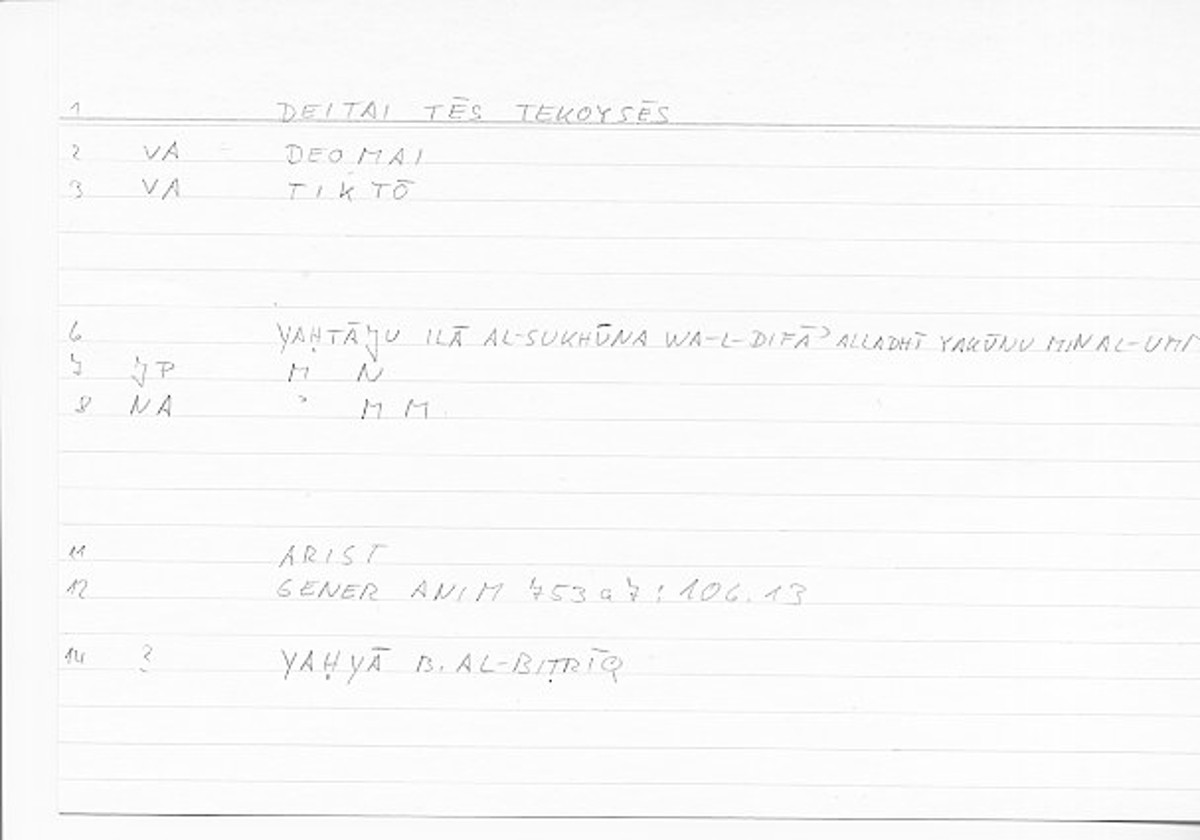 1 DEITAI TĒS TEKOYSĒS
2 VA DEOMAI
3 VA TIKTŌ
6 YAḤTĀJU ILĀ AL-SUKHŪNA WA-L-DIFĀʾ ALLADHĪ YAKŪNU MIN AL-UMM
7 JP M N
8 NA ʾ M M
11 ARIST
12 GENER ANIM 753a7: 106.13
14 ? YAḤYĀ B. AL-BIṬRĪQ